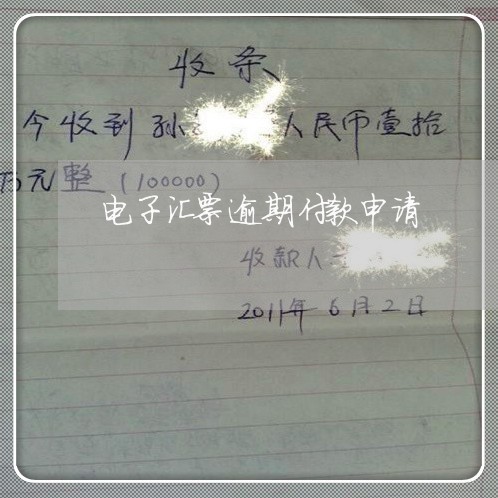 收条
今收到孙 人民币壹拾
万元整（100000）
电子汇票逾期付款申请
收款人
2011年6月2日